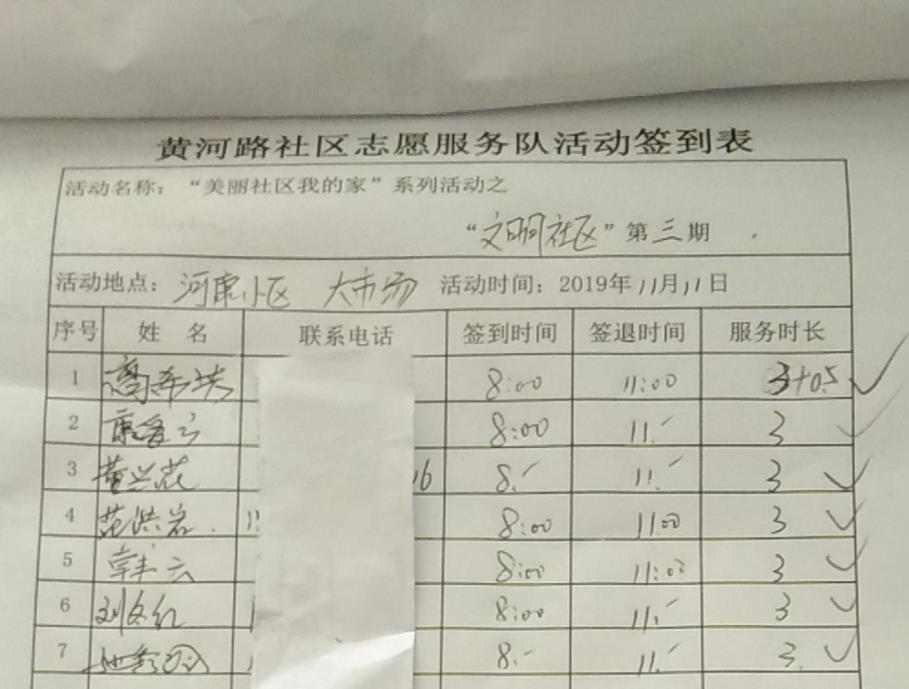 黄河路社区志愿服务队活动签到表
活动名称：“美丽社区我的家”系列活动之
“文明社区”第三期
活动地点：河东小区 大市场 活动时间：2019年11月11日
序号 姓 名 联系电话 签到时间 签退时间 服务时长
1 8:00 11:00 3+0.5 ✓
2 8:00 11.- 3 ✓
3 黄兴花 16 8.- 11.- 3 ✓
4 范洪岩 8:00 11:00 3 ✓
5 8:00 11:00 3 ✓
6 刘冬红 8:00 11.- 3 ✓
7 8.- 11.- 3. ✓